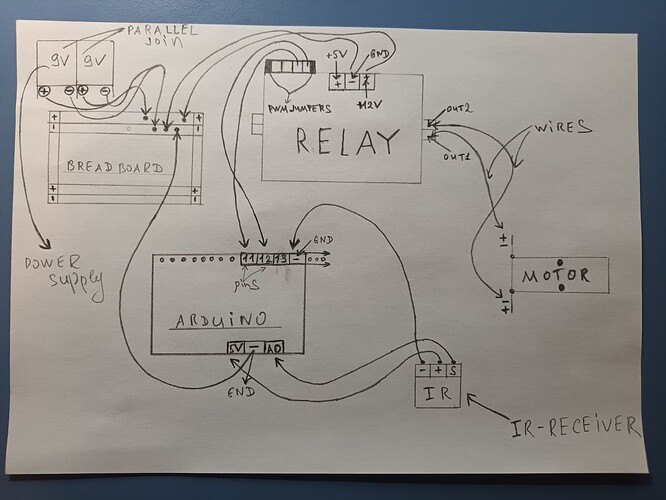 PARALLEL
JOIN
9V 9V
+ - + -
+5V
GND
+ -
+12V
PWM JUMPERS
RELAY
OUT2
OUT1
WIRES
+ +
- -
BREADBOARD
+ +
- -
POWER
SUPPLY
GND
11 12 13 -
pins
ARDUINO
5V - A0
GND
+ -
MOTOR
+ -
- + S
IR
IR-RECEIVER